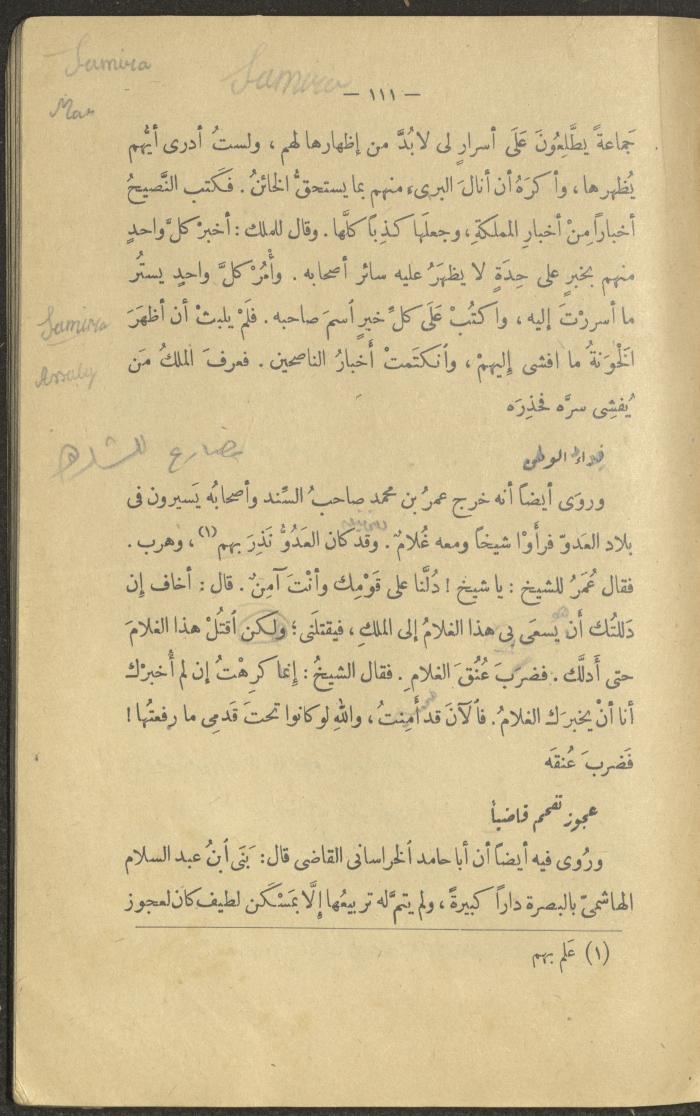 Samira
Samira
— ١١١ —
جَماعةً يطَّلِعُونَ عَلَى أسرارٍ لى لابُدَّ من إظهارها لهم ، ولستُ أدرى أيُّهم
يُظهرها ، وأكرَهُ أن أنالَ البرىء منهم بما يستحقُّ الخائنُ . فكَتب النَّصيحُ
أخباراً مِنْ أخبارِ المملكةِ ، وجعلَها كذِبًا كلَّها . وقال للملك : أخبرْ كلَّ واحدٍ
منهم بخبرٍ على حِدَةٍ لا يظهَرُ عليه سائر أصحابه . وأْمُرْ كلَّ واحدٍ يستُر
ما أسررْتَ إليه ، واكتُبْ عَلَى كلِّ خبرٍ ٱسمَ صاحبه . فلَمْ يلبثْ أن أظهَرَ
الخَوَنةُ ما افشى إِليهمْ ، وٱنكتَمتْ أَخبارُ الناصحين . فعرفَ الملكُ مَن
يُفشِى سرَّه فحَذِرَه
Samira
فداء الوطن
وروَى أيضاً أنه خرج عمرُ بن محمد صاحبُ السِّند وأصحابُه يَسيرون فى
بلاد العَدوّ فرأَوْا شيخاً ومعه غُلامٌ . وقد كان العَدُوُّ نَذِرَ بهم (١) ، وهرب .
فقال عُمَرُ للشيخ : يا شيخ ! دُلَّنا على قَوْمِك وأنْتَ آمِنٌ . قال : أخاف إن
دَللتُك أَن يسعَى بى هذا الغلامُ إلى الملكِ ، فيقتلَنى ؛ ولكن ٱقتُلْ هذا الغلامَ
حتى أَدلَّك . فضرَبَ عُنُقَ الغلامِ . فقال الشيخُ : إِنما كرِهْتُ إن لم أُخبرْك
أنا أنْ يخبرَك الغلامُ . فٱلآنَ قد أَمِنتُ ، واللهِ لو كانوا تحتَ قدَمِى ما رفعتُها !
فَضربَ عُنقَه
عجوز تفحم قاضياً
ورُوى فيه أيضاً أن أبا حامد ٱلخراسانى القاضى قال : بَنَى ٱبنُ عبد السلام
الهاشمىّ بالبصرة داراً كبيرةً ، ولم يتمَّ له تربيعُها إِلَّا بمَسْكَن لطيف كان لعجوز
(١) عَلم بهم